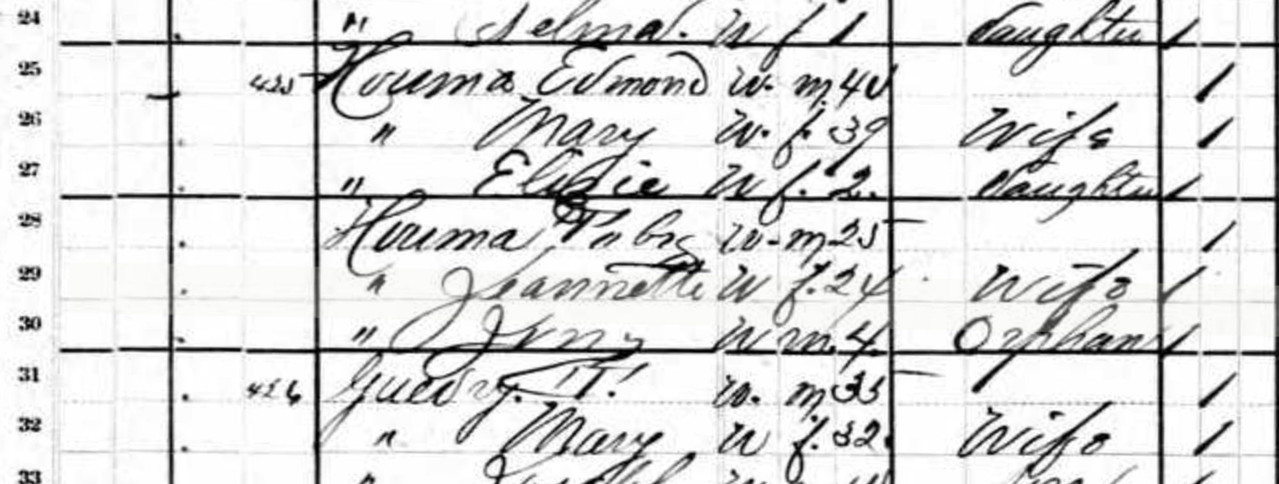 24 " Selma. W f 1 daughter /
25 425 Houma Edmond W. m. 40 /
26 " Mary W. f. 39 Wife /
27 " Elidie W f. 2. daughter /
28 Houma W. m 25 /
29 " Jeannette W f. 24 Wife /
30 " W m. 4. Orphan /
31 426 Guedry. T. W. m 35 /
32 " Mary W f. 32 Wife /
33 "